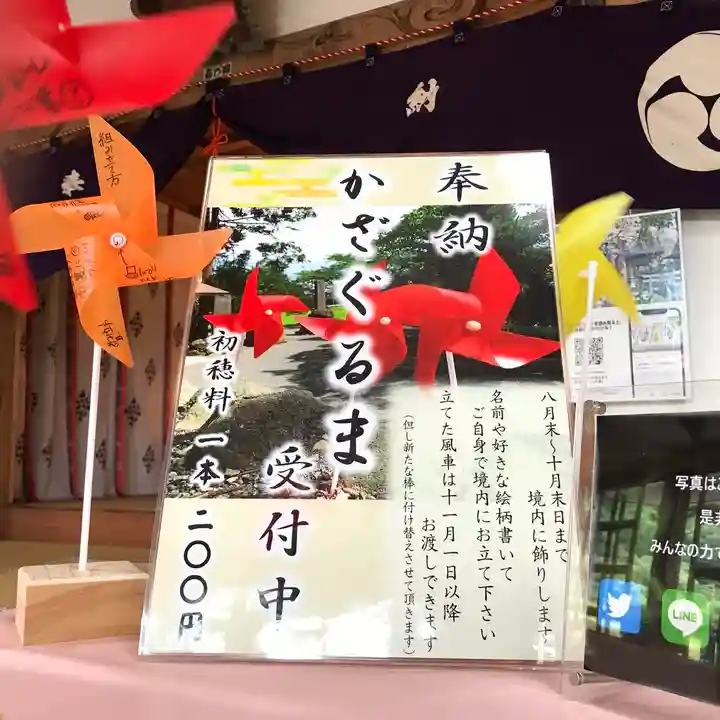 奉納
かざぐるま
受付中
初穂料 一本 二〇〇円
八月末〜十月末日まで
境内に飾りします
名前や好きな絵柄書いて
ご自身で境内にお立て下さい
立てた風車は十一月一日以降
お渡しできます
(但し新たな棒に付け替えさせて頂きます)
組み立て方
納
奉
写真はご
是非
みんなの力で
LINE